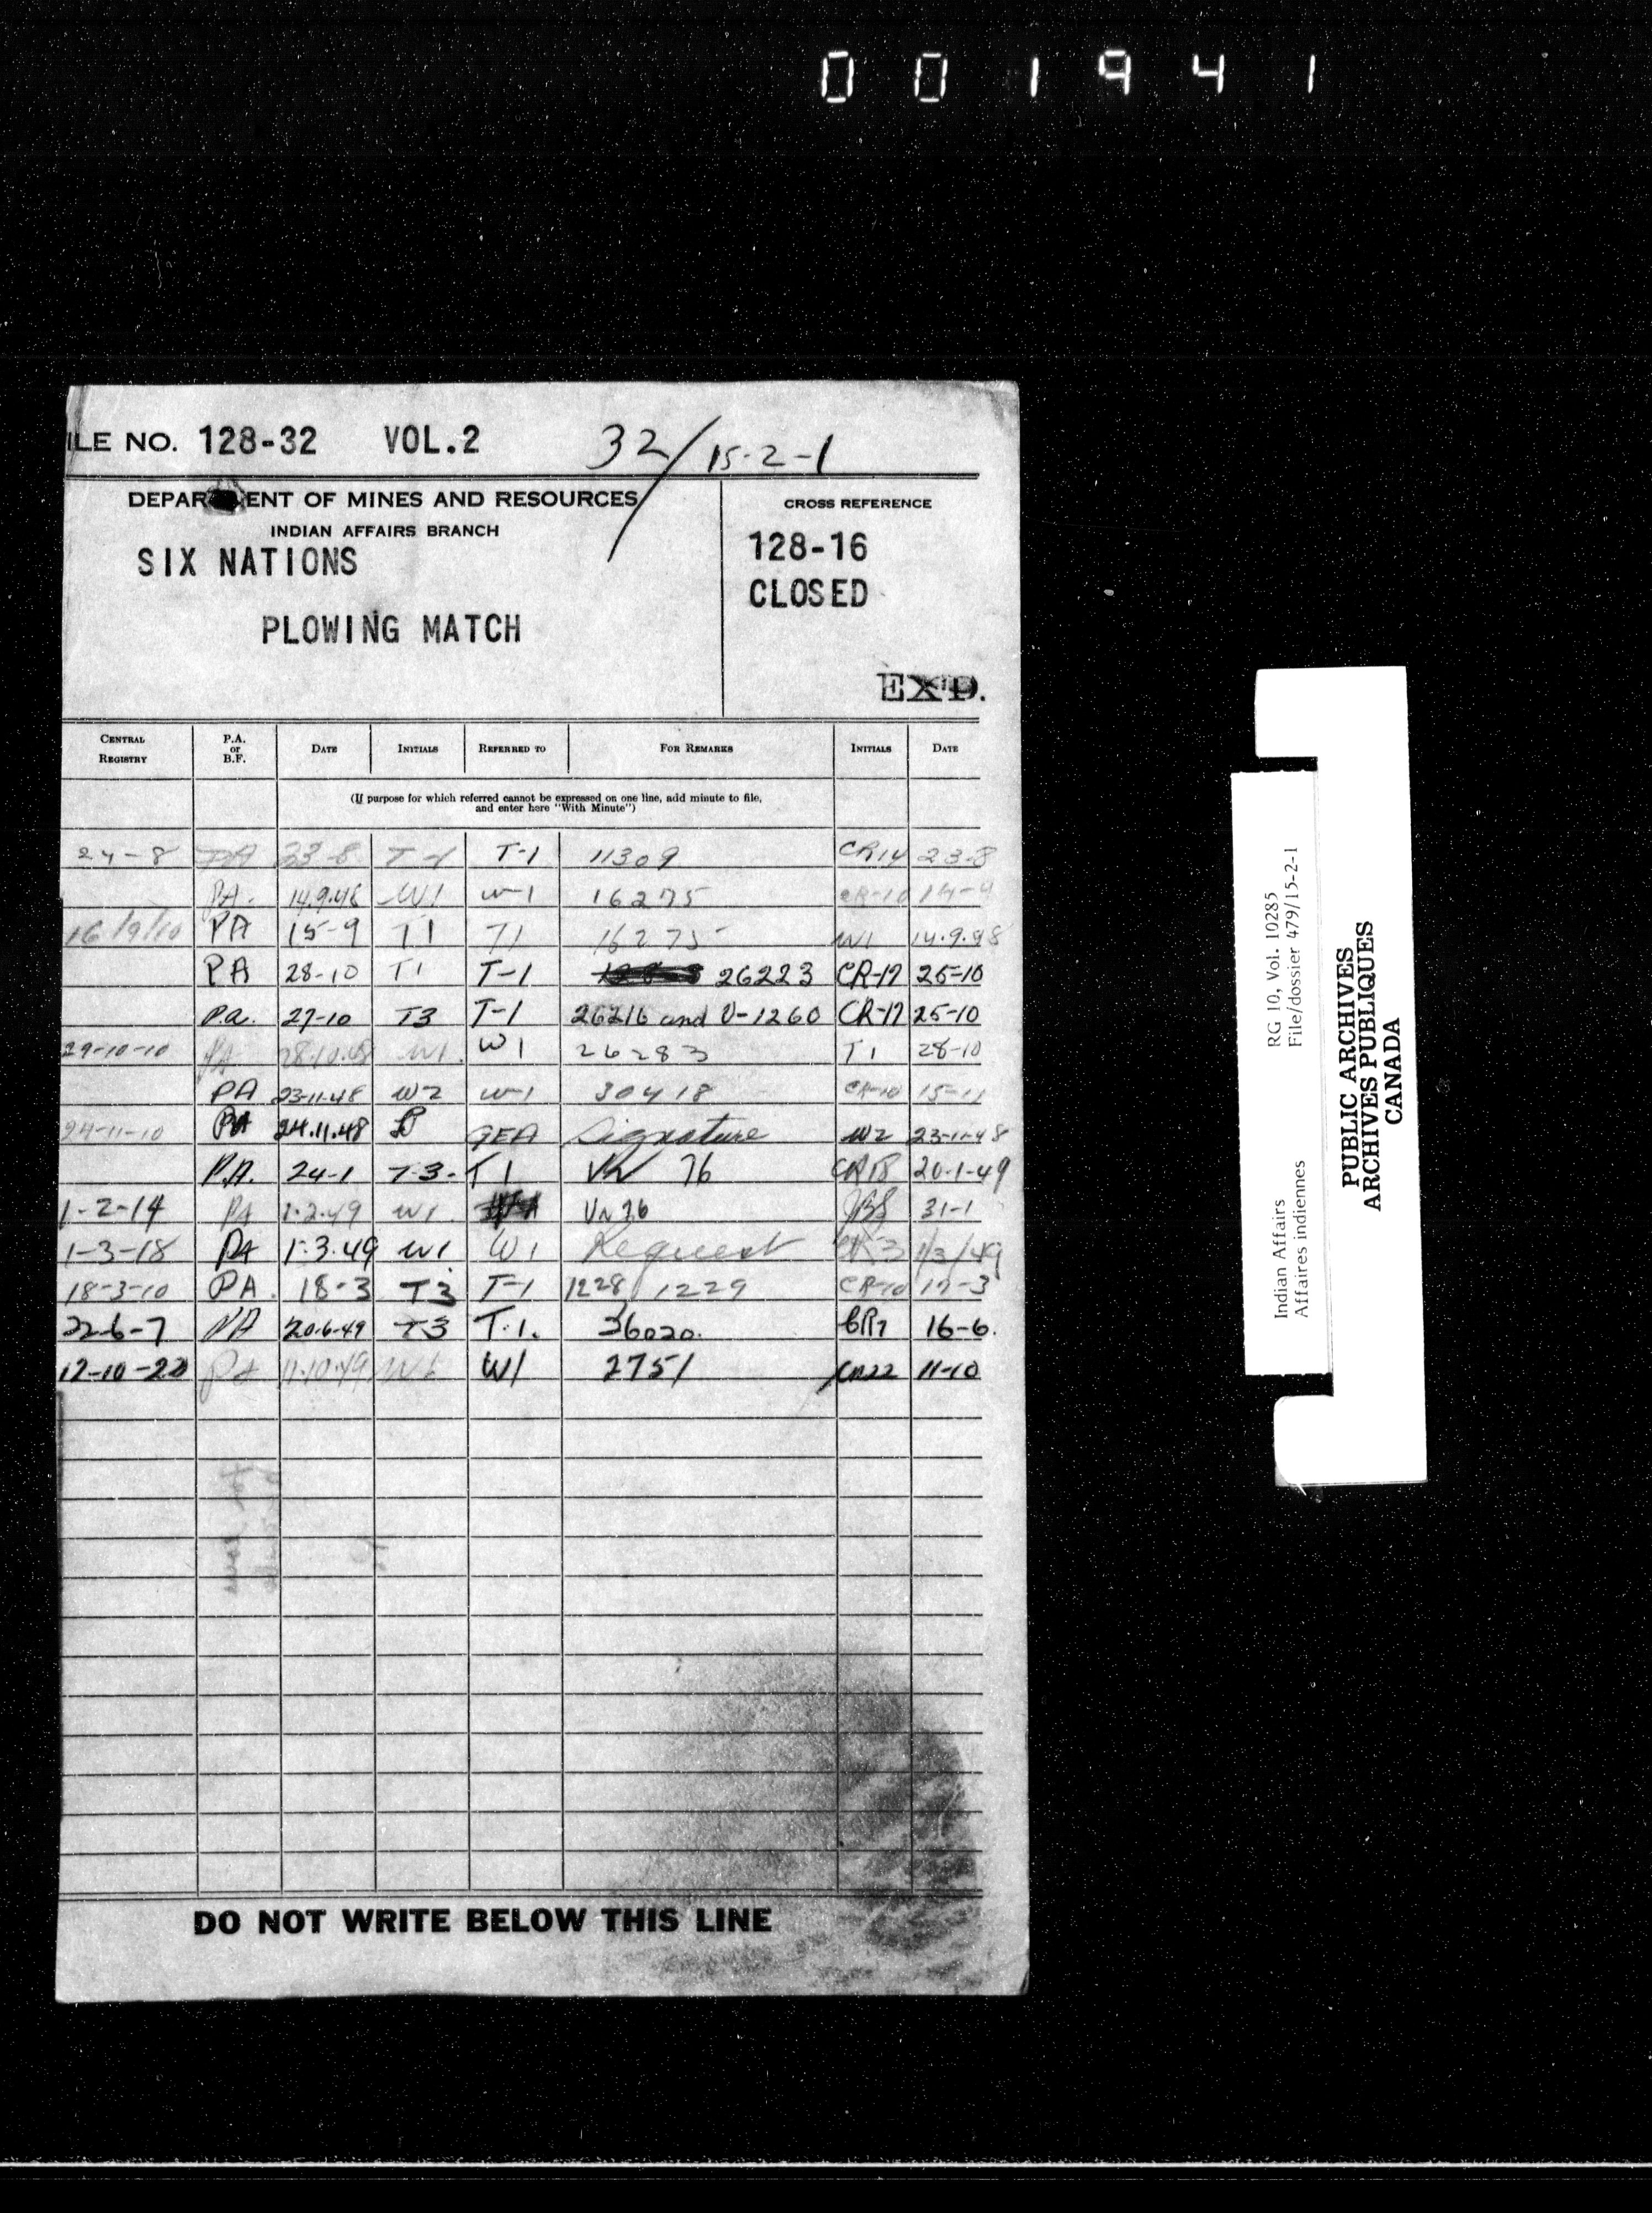 001941
ILE NO. 128-32 VOL.2 32/15-2-1
DEPAR ENT OF MINES AND RESOURCES
INDIAN AFFAIRS BRANCH
SIX NATIONS
PLOWING MATCH
CROSS REFERENCE
128-16
CLOSED
EXP.
CENTRAL REGISTRY P.A. or B.F. DATE INITIALS REFERRED TO FOR REMARKS INITIALS DATE
(If purpose for which referred cannot be expressed on one line, add minute to file,
and enter here "With Minute")
24-8 PA 23-8 T-1 T-1 11309 CR14 23-8
PA. 14.9.48 W1 W-1 16275 CR-10 14-9
16/9/10 PA 15-9 T1 T1 16275 W1 14.9.48
PA 28-10 T1 T-1 26223 CR-17 25-10
P.a. 27-10 T3 T-1 26216 and V-1260 CR-17 25-10
29-10-10 PA 28.10.48 W1. W1 26283 T1 28-10
PA 23-11-48 W2 W-1 30418 CR-10 15-11
24-11-10 PA 24.11.48 GEA Signature W2 23-11-48
P.A. 24-1 T-3- T1 Vr 76 CR18 20-1-49
1-2-14 PA 1-2-49 W1. Vr 76 31-1
1-3-18 PA 1.3.49 W1 W1 Request CR3 1/3/49
18-3-10 PA. 18-3 T3 T-1 1228/1229 CR-10 17-3
22-6-7 PA 20-6-49 T3 T.1. 36020. CR7 16-6.
12-10-22 PA 11.10.49 W1 W1 2751 CR22 11-10
DO NOT WRITE BELOW THIS LINE
Indian Affairs RG 10, Vol. 10285
Affaires indiennes File/dossier 479/15-2-1
PUBLIC ARCHIVES
ARCHIVES PUBLIQUES
CANADA